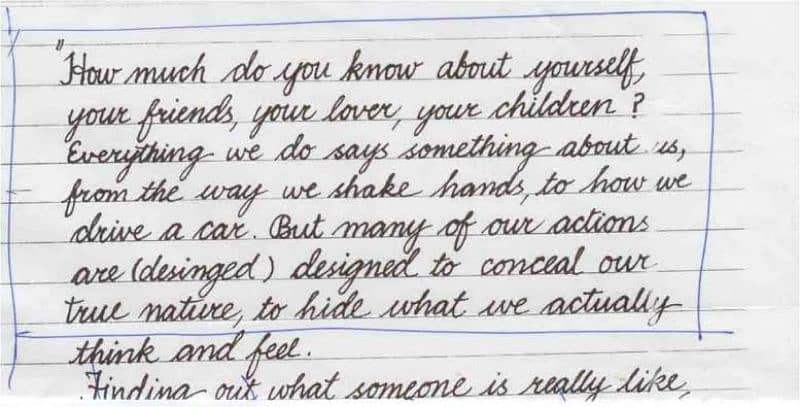 "How much do you know about yourself,
your friends, your lover, your children ?
Everything we do says something about us,
from the way we shake hands, to how we
drive a car. But many of our actions
are (desinged) designed to conceal our
true nature, to hide what we actually
think and feel.
Finding out what someone is really like,